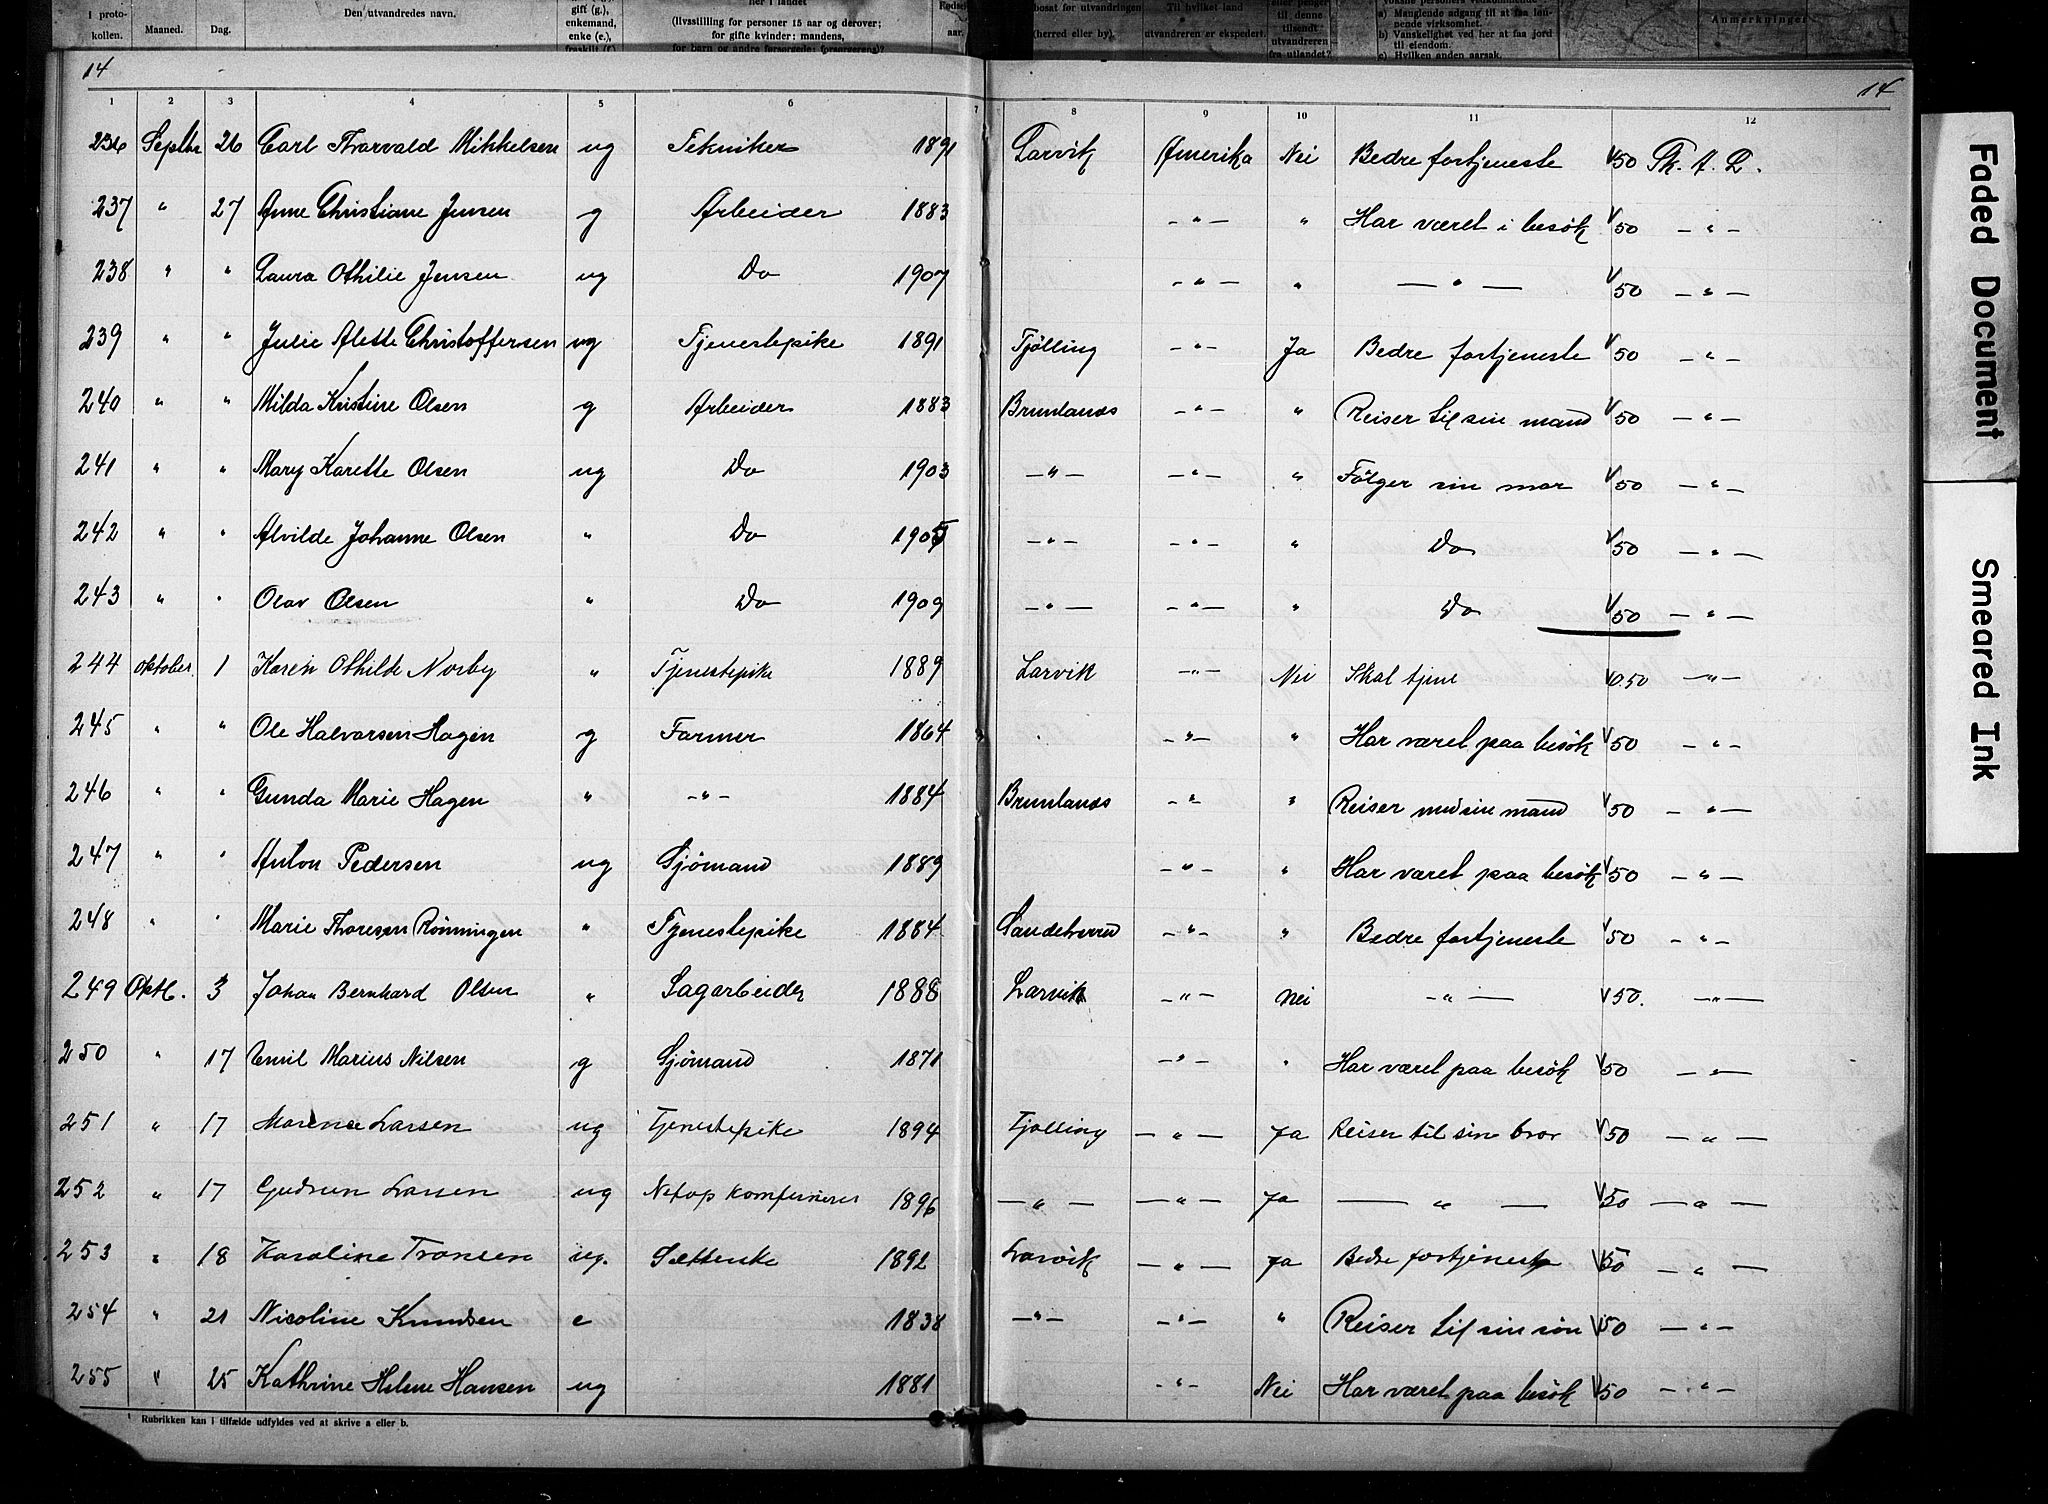 I proto-
kollen.
Maaned.
Dag.
Den utvandredes navn.
gift (g.),
enkemand,
enke (e.),
her i landet
(livsstilling for personer 15 aar og derover;
for gifte kvinder: mandens,
for barn og andre forsørgede: forsørgerens)?
Fødsels
aar.
bosat før utvandringen
(herred eller by).
Til hvilket land
utvandreren er ekspedert.
eller penger
til denne
tilsendt
utvandreren
fra utlandet?
a) Manglende adgang til at faa løn-
nende virksomhet.
b) Vanskelighet ved her at faa jord
til eiendom.
c) Hvilken anden aarsak.
Anmerkninger.
14 14
1 2 3 4 5 6 7 8 9 10 11 12
236 Septbr 26 Carl Thorvald Mikkelsen ug Tekniker 1891 Larvik Amerika Nei Bedre fortjeneste 1/50 Th. A. L.
237 " 27 Anne Christiane Jensen g Arbeider 1883 - " - " Har været i besök 1/50 - " -
238 " " Laura Othilie Jensen ug Do 1907 - " - " - " - 1/50 - " -
239 " " Julie Alette Christoffersen ug Tjenestepike 1891 Tjölling - " - Ja Bedre fortjeneste 1/50 - " -
240 " " Milda Kristine Olsen g Arbeider 1883 Brunlanæs - " - " Reiser til sin mand 1/50 - " -
241 " " Mary Karette Olsen ug Do 1903 - " - - " - " Fölger sin mor 1/50 - " -
242 " " Alvilde Johanne Olsen " Do 1905 - " - - " - " Do 1/50 - " -
243 " " Olav Olsen " Do 1909 - " - - " - " Do 1/50 - " -
244 oktober 1 Karen Othilde Norby " Tjenestepike 1889 Larvik - " - Nei Skal tjene 1/0.50 - " -
245 " " Ole Halvorsen Hagen g Farmer 1864 - " - " Har været paa besök 1/50 - " -
246 " " Gunda Marie Hagen " - " - 1884 Brunlanæs - " - " Reiser med sin mand 1/50 - " -
247 " " Anton Pedersen ug Sjömand 1889 - " - " Har været paa besök 1/50 - " -
248 " " Marie Thoresen Rönningen " Tjenestepike 1884 Sandeherred - " - " Bedre fortjeneste 1/50 - " -
249 Oktb. 3 Johan Bernhard Olsen " Sagarbeider 1888 Larvik - " - Nei - " - 1/50. - " -
250 " 17 Emil Marius Nilsen g Sjömand 1871 - " - " Har været paa besök 1/50 - " -
251 " 17 Marene Larsen ug Tjenestepike 1894 Tjolling - " - Ja Reiser til sin bror 1/50 - " -
252 " 17 Gudrun Larsen ug Netop komfirmeret 1896 - " - - " - Ja - " - 1/50 - " -
253 " 18 Karoline Transen ug. Sætterske 1892 Larvik - " - Ja Bedre fortjeneste 1/50 - " -
254 " 21 Nicoline Knudsen e 1838 - " - - " - " Reiser til sin sön 1/50 - " -
255 " 25 Kathrine Helene Hansen ug 1881 - " - Nei Har været paa besök 1/50 - " -
¹ Rubrikken kan i tilfælde utfyldes ved at skrive a eller b.
Faded Document
Smeared Ink